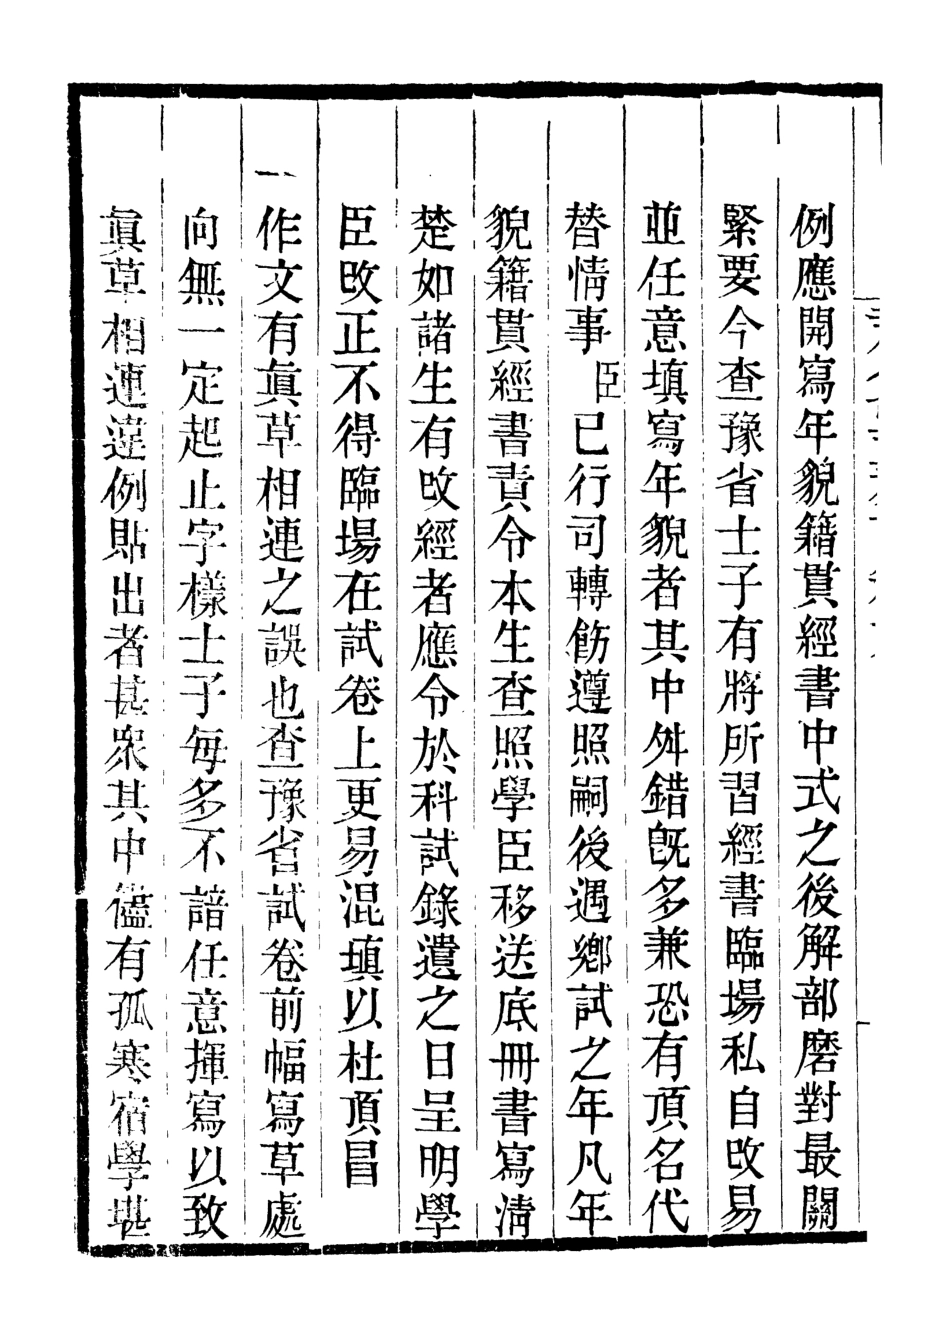 例應開寫年貌籍貫經書中式之後解部磨對最關
緊要今查豫省士子有將所習經書臨場私自改易
並任意填寫年貌者其中舛錯既多兼恐有頂名代
替情事臣已行司轉飭遵照嗣後遇鄉試之年凡年
貌籍貫經書責令本生查照學臣移送底冊書寫清
楚如諸生有改經者應令於科試錄遺之日呈明學
臣改正不得臨場在試卷上更易混填以杜頂冒
一作文有眞草相連之誤也查豫省試卷前幅寫草處
向無一定起止字樣士子每多不諳任意揮寫以致
眞草相連違例貼出者甚眾其中儘有孤寒宿學堪